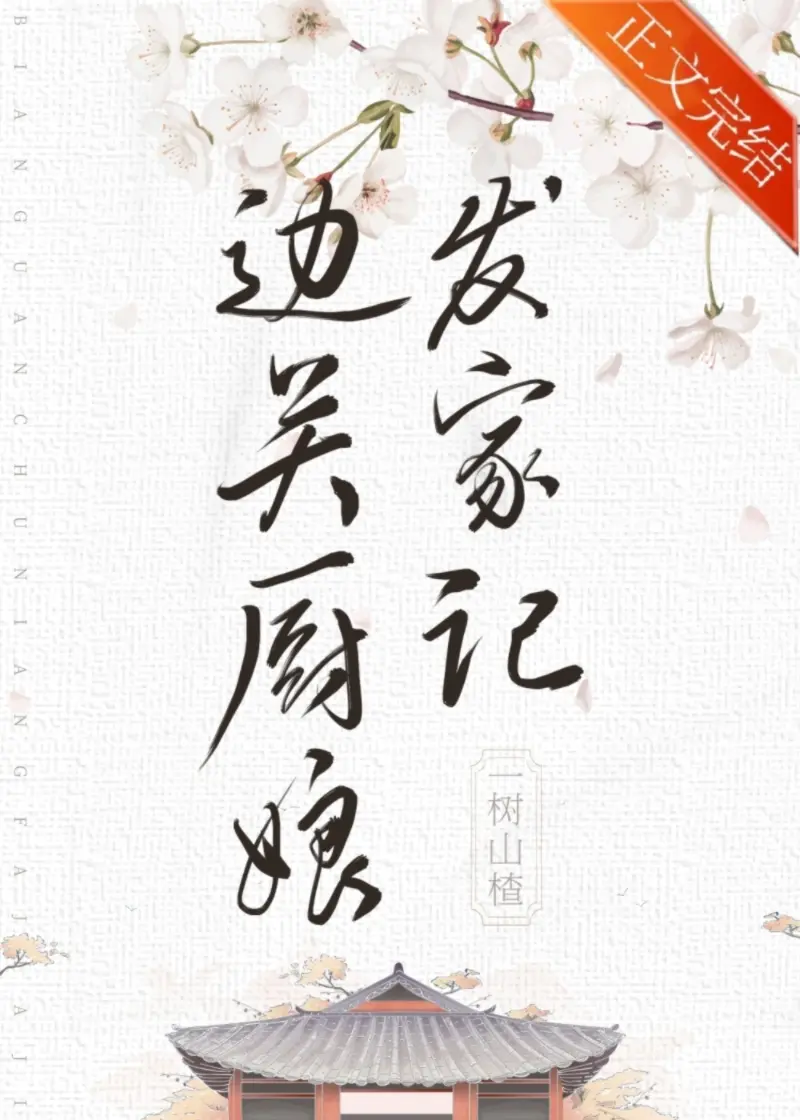 边关厨娘
发家记
一树山楂
正文完结
BIANGUANCHUNIANGFAJIAJI